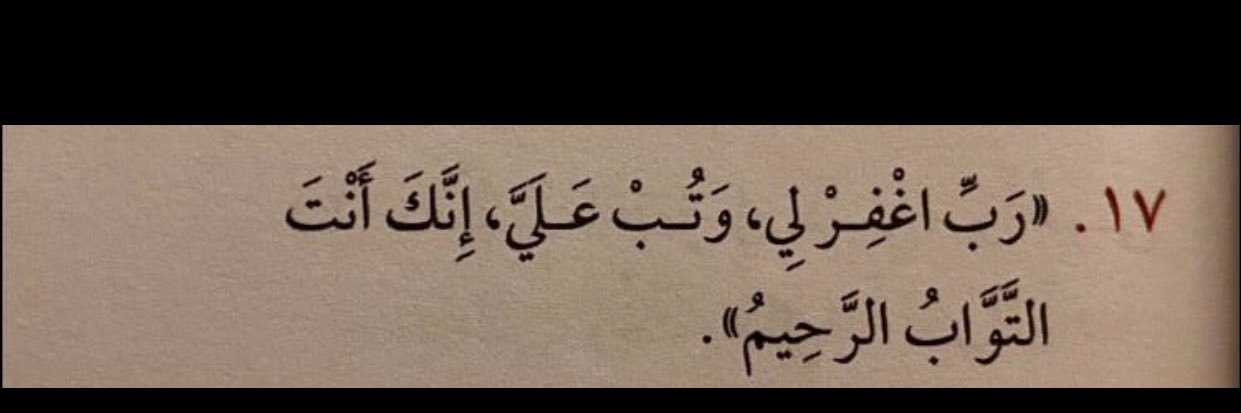 ١٧. «رَبِّ اغْفِـرْ لِي، وَتُـبْ عَـلَيَّ، إِنَّكَ أَنْتَ
التَّوَّابُ الرَّحِيمُ».